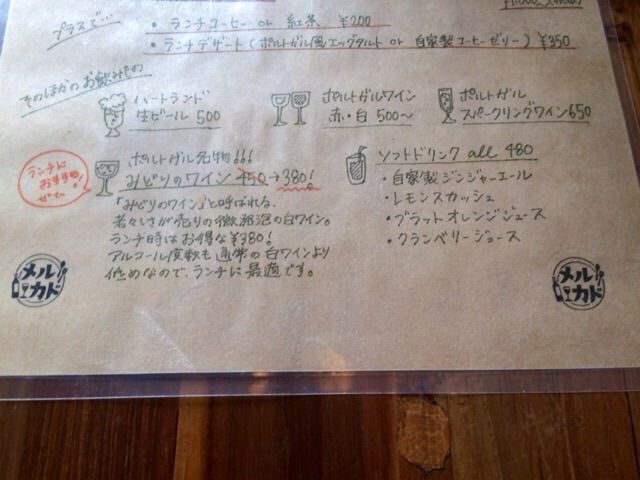 プラスで…
・ランチコーヒー or 紅茶 ¥200
・ランチデザート（ポルトガル風エッグタルト or 自家製コーヒーゼリー）¥350
そのほかのお飲みもの
ハートランド
生ビール 500
ポルトガルワイン
赤・白 500〜
ポルトガル
スパークリングワイン 650
ランチに
おすすめ
ポルトガル名物!!!
みどりのワイン 450→380!
「みどりのワイン」と呼ばれる、
若々しさが売りの微発泡の白ワイン。
ランチ時はお得な¥380!
アルコール度数も通常の白ワインより
低めなので、ランチに最適です。
ソフトドリンク all 480
・自家製ジンジャーエール
・レモンスカッシュ
・ブラットオレンジジュース
・クランベリージュース
メル
カド
メル
カド